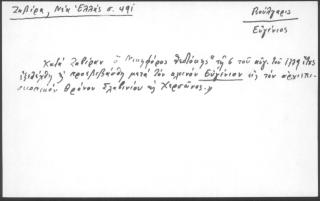 Ζαβίρα, Νέα Ἑλλάς σ. 491
Βούλγαρις
Εὐγένιος
Κατά Ζαβίραν "ὁ Νικηφόρος Θεοτόκης τῇ 6 τοῦ αὐγ. τοῦ 1779 ἔτους
ἐξελέχθη καὶ προεβιβάσθη μετά τόν Εὐγένιον εἰς τόν ἀρχιεπι-
σκοπικόν θρόνον Σλαβινίου καὶ Χερσῶνος."